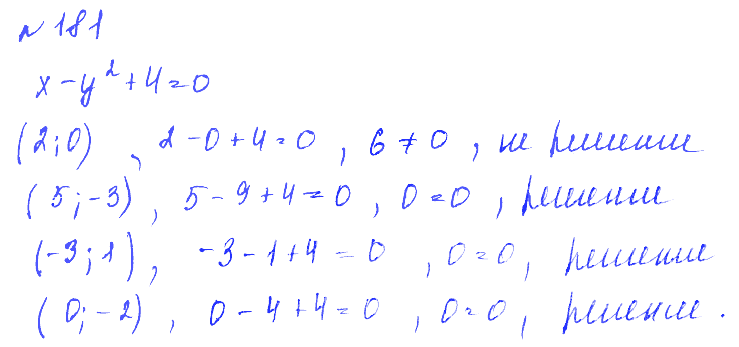 № 181
x - y² + 4 = 0
(2; 0), 2 - 0 + 4 = 0, 6 ≠ 0, не решение
(5; -3), 5 - 9 + 4 = 0, 0 = 0, решение
(-3; 1), -3 - 1 + 4 = 0, 0 = 0, решение
(0; -2), 0 - 4 + 4 = 0, 0 = 0, решение.